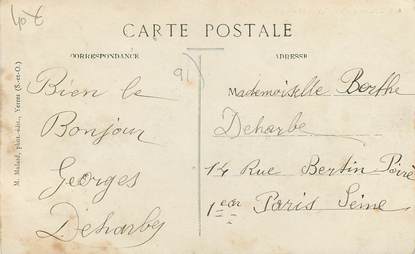 40 €
CARTE POSTALE
CORRESPONDANCE
ADRESSE
91
Bien le
Bonjour
Georges
Deharbe
Mademoiselle Berthe
Deharbe
14 Rue Bertin Poiré
1er Paris Seine
M. Mulard, phot.-édit., Yerres (S.-et-O.)